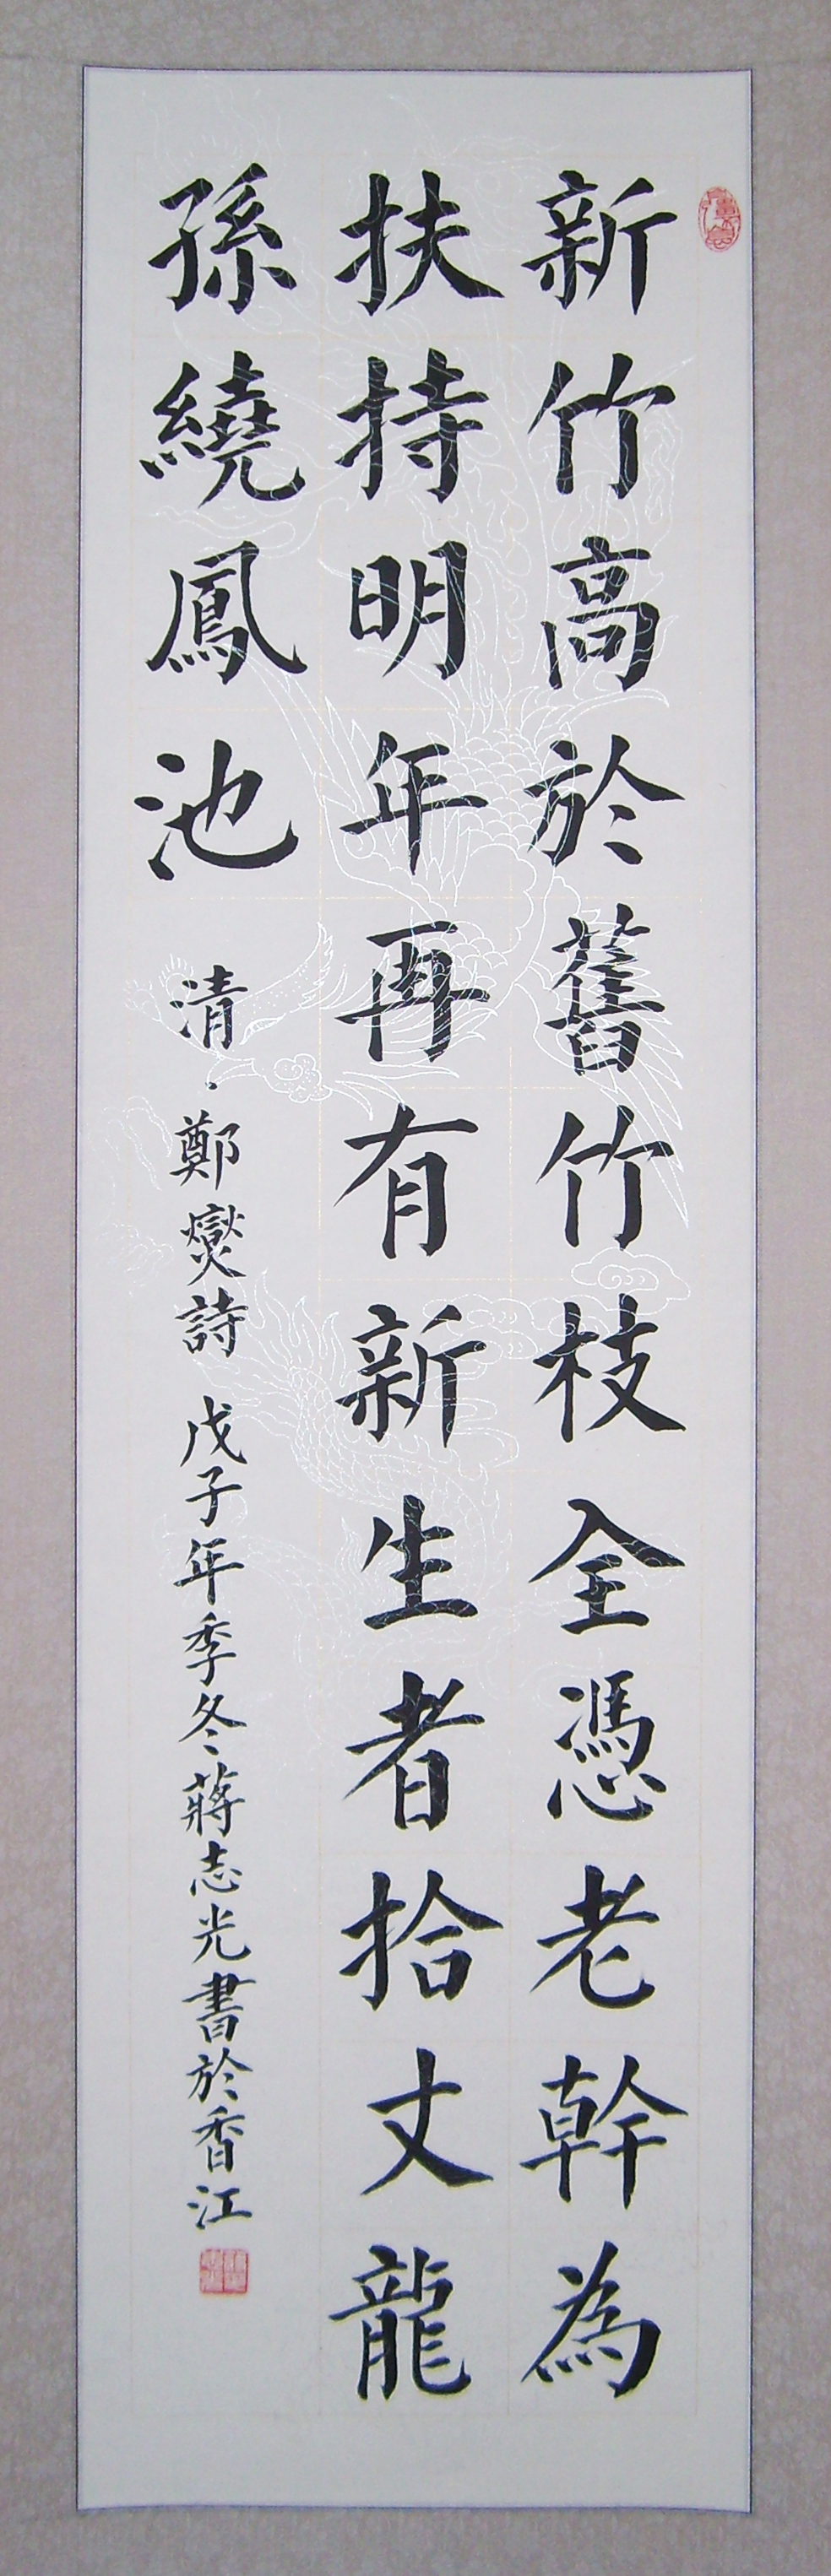 新竹高於舊竹枝全憑老幹為
扶持明年再有新生者拾丈龍
孫繞鳳池 清·鄭燮詩 戊子年季冬蔣志光書於香江